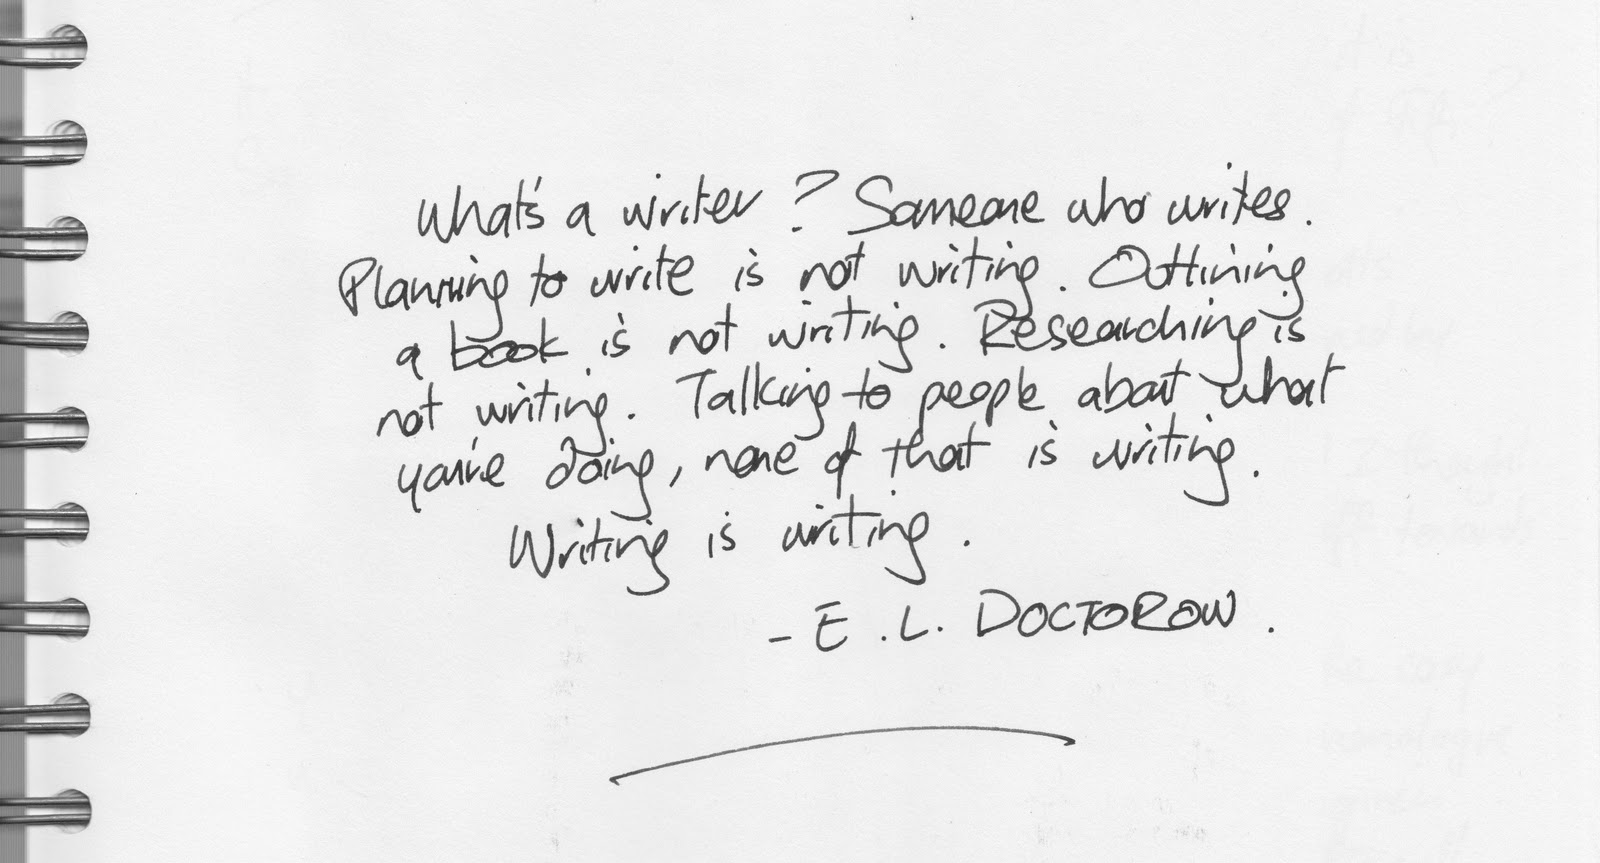 What's a writer? Someone who writes.
Planning to write is not writing. Outlining
a book is not writing. Researching is
not writing. Talking to people about what
you're doing, none of that is writing.
Writing is writing.
- E.L. DOCTOROW.